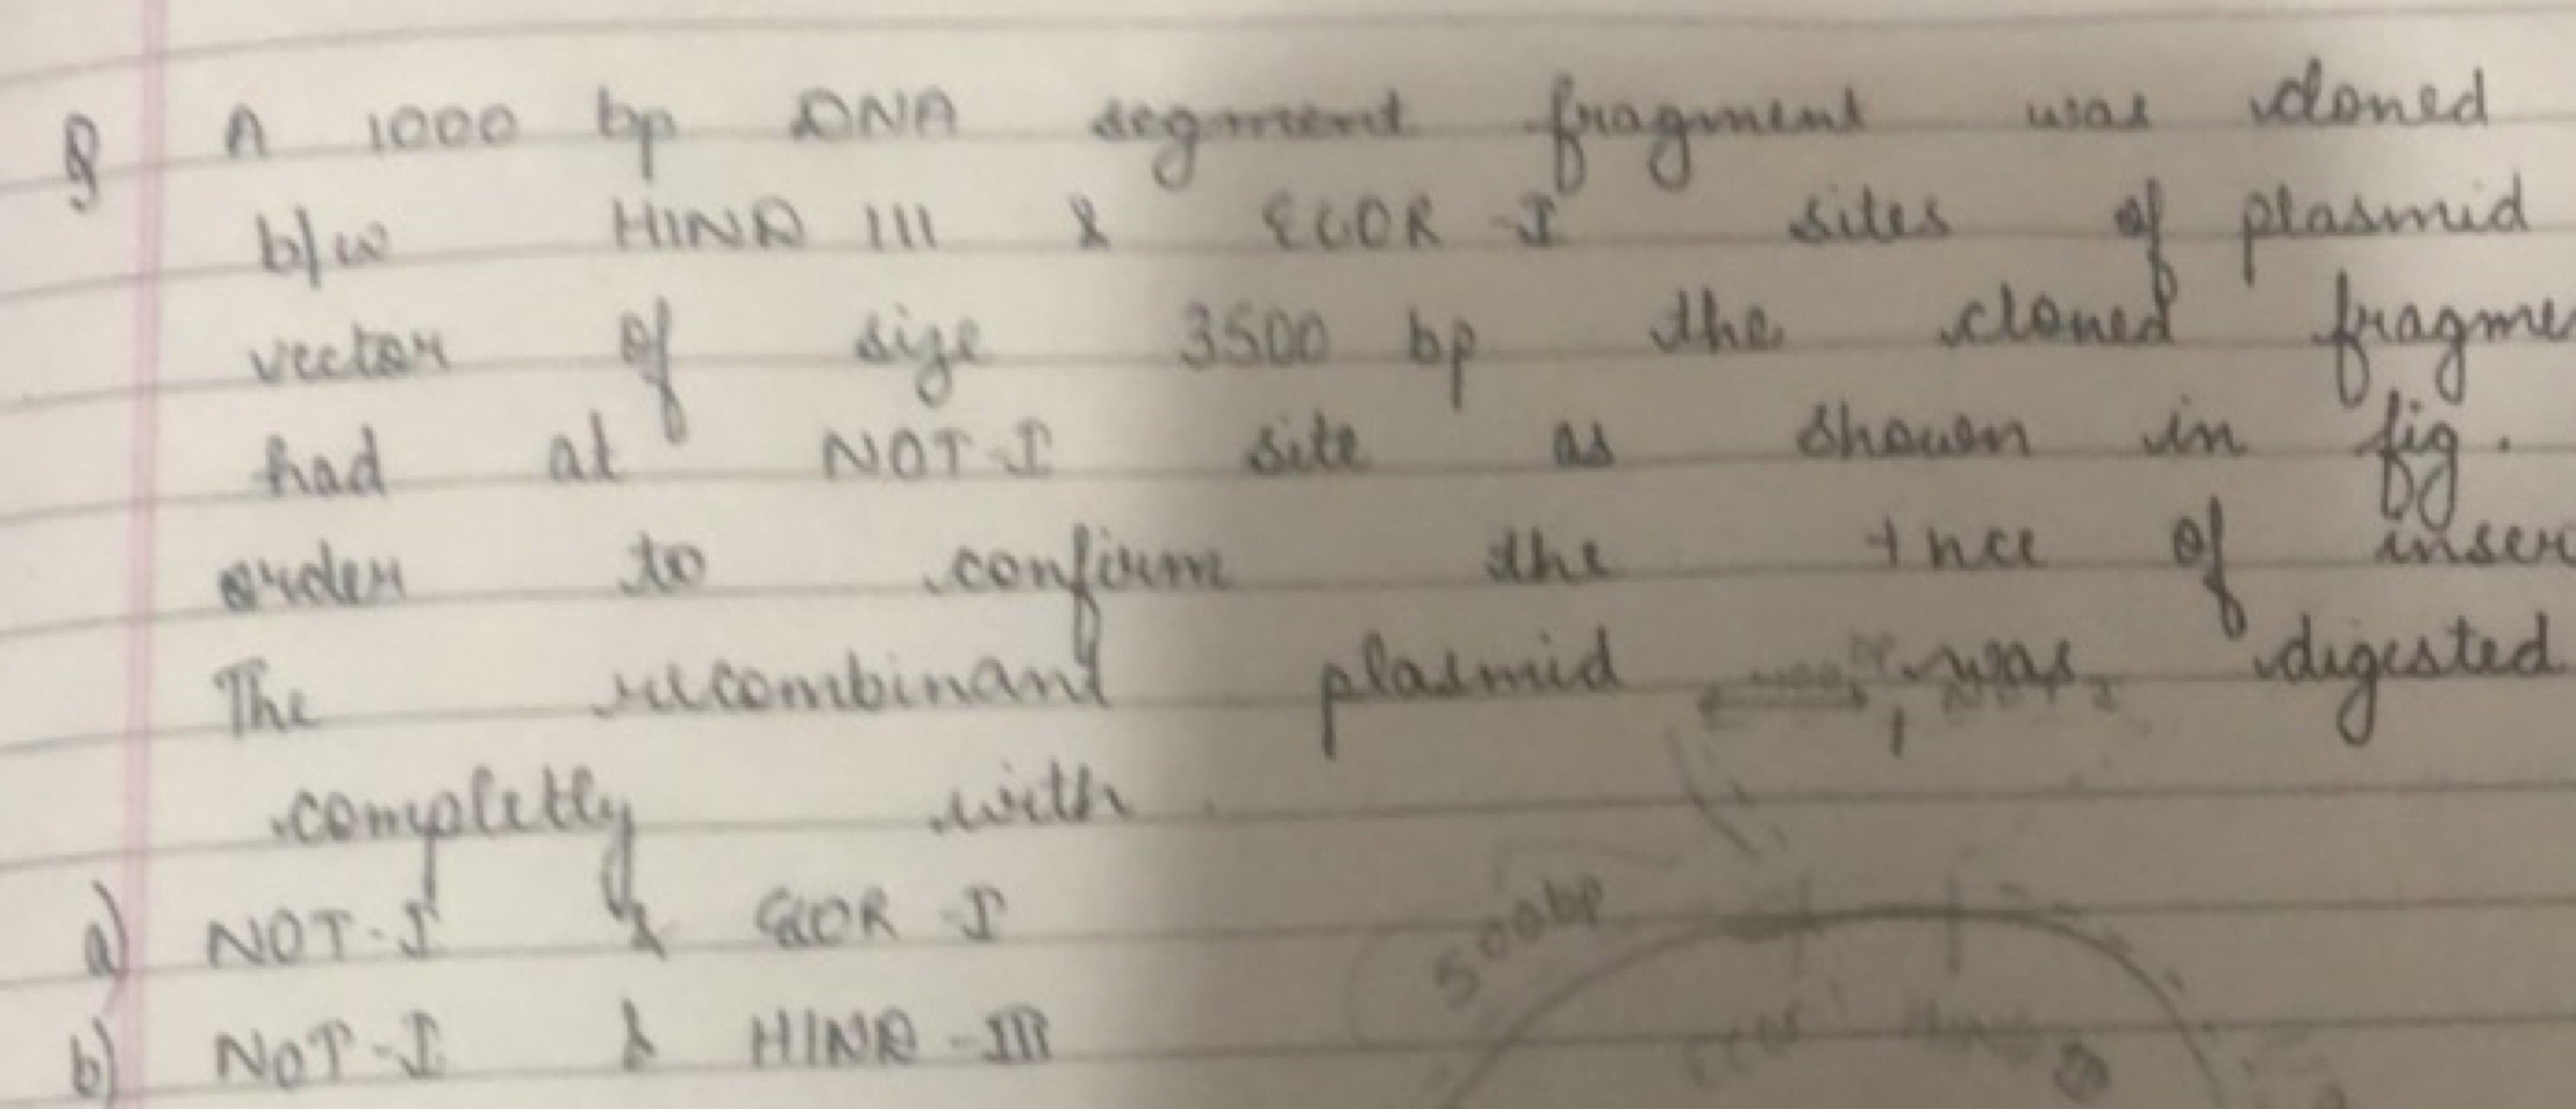 Q A 1000 bp DNA segment fragment was cloned
b/w HIND III & ECOR -I sites of plasmid
vector of size 3500 bp the cloned fragme
had at NOT-I site as shown in fig.
order to confirm the +nce of inser
The recombinant plasmid was digested
completly with
a) NOT-I & ECOR -I
500bp
b) NOT-I & HIND -III